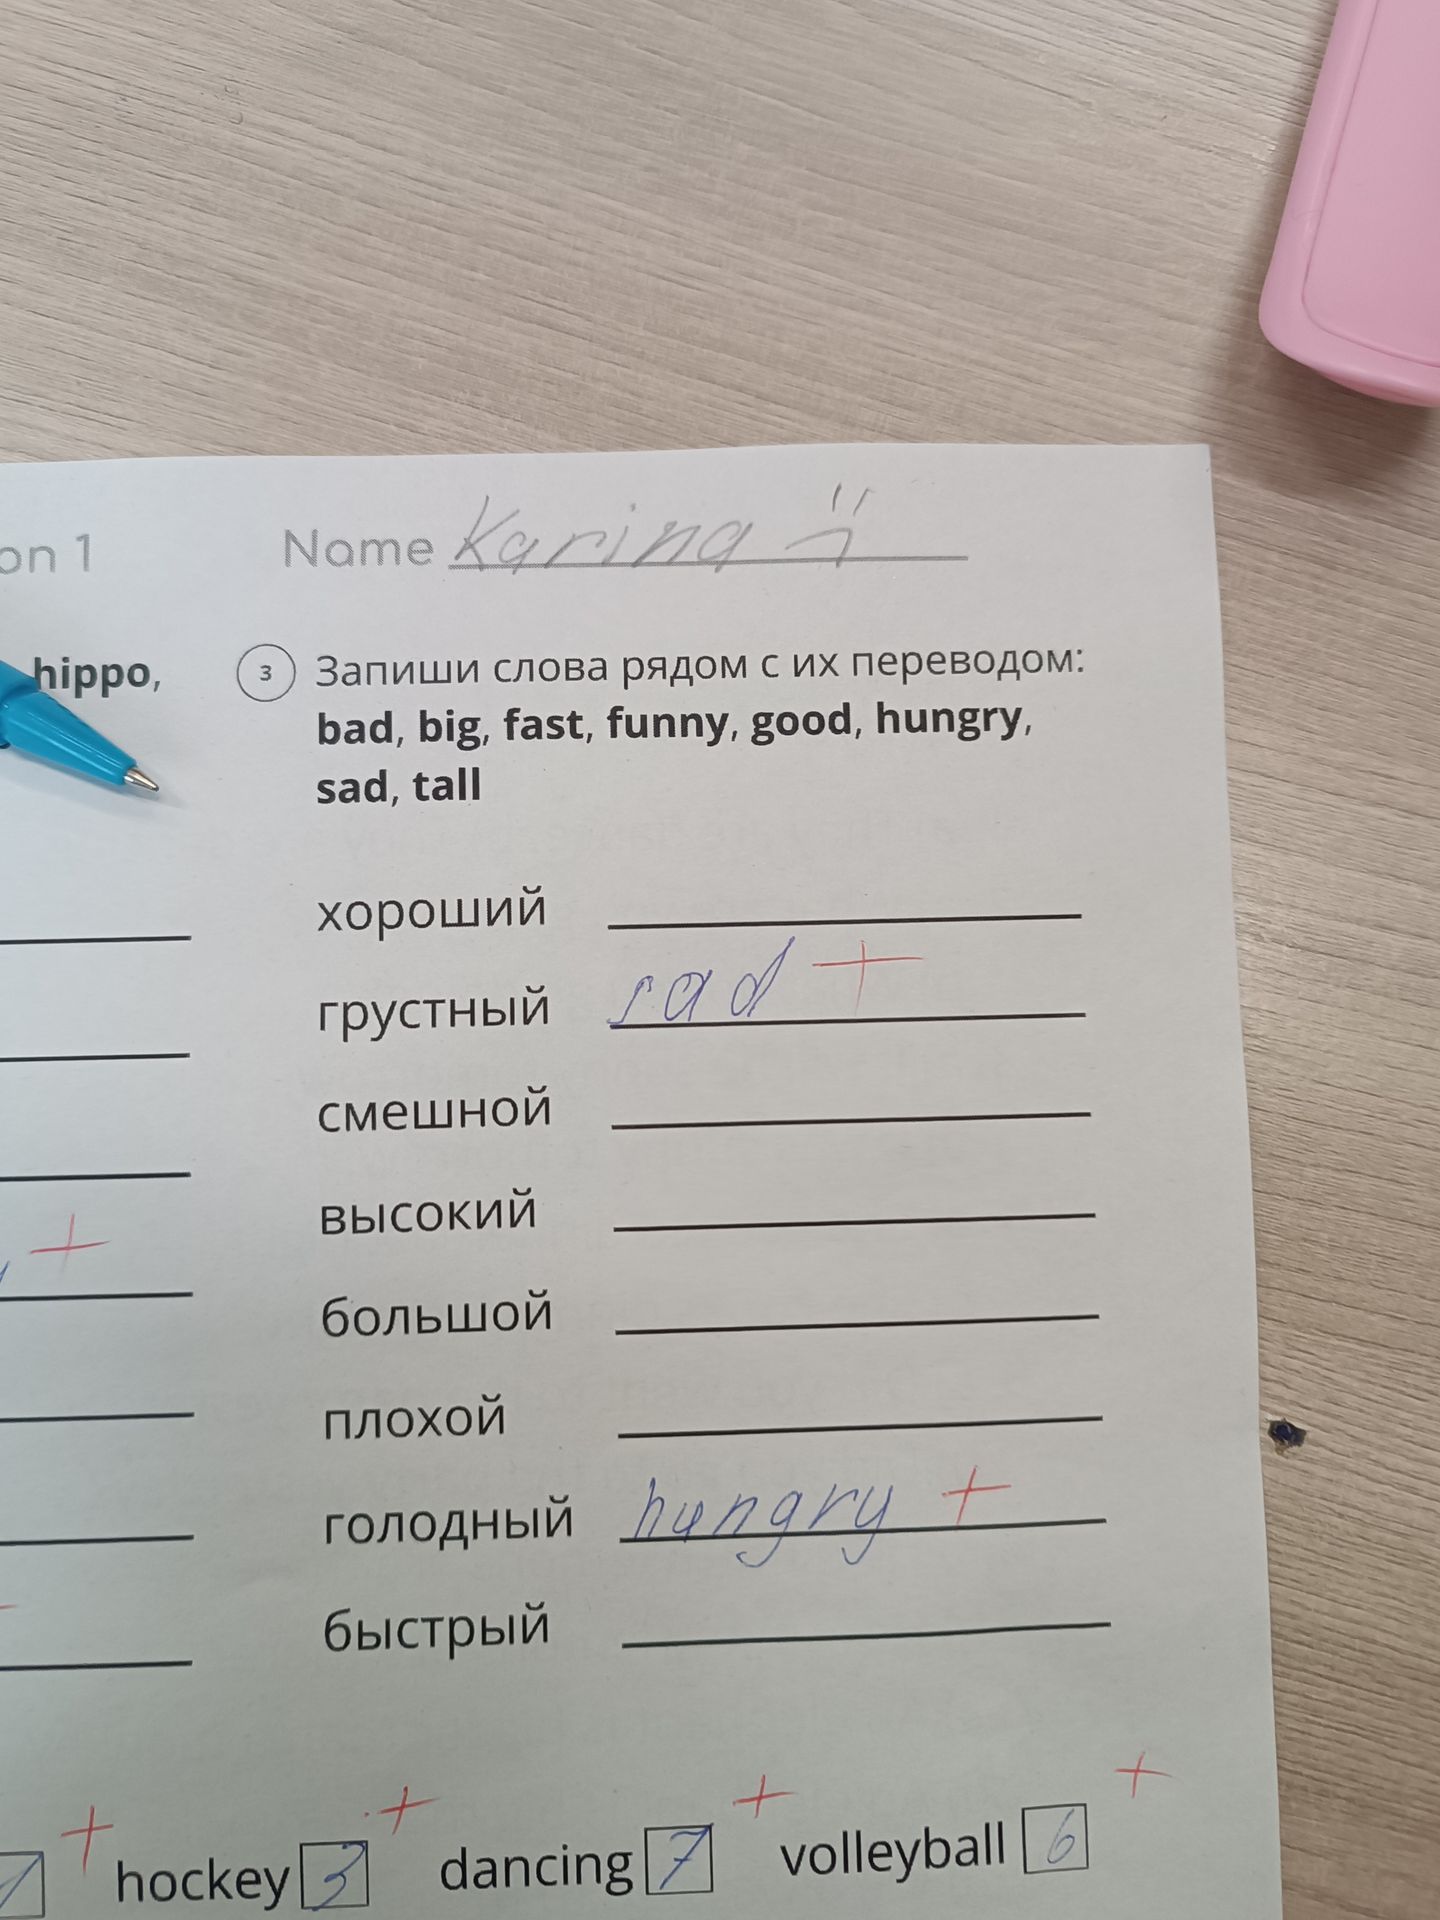 on 1
Name Karina
hippo,
3 Запиши слова рядом с их переводом:
bad, big, fast, funny, good, hungry,
sad, tall
хороший
грустный sad +
смешной
высокий
+
большой
плохой
голодный hungry +
быстрый
+ + + +
hockey 3 dancing 7 volleyball 6